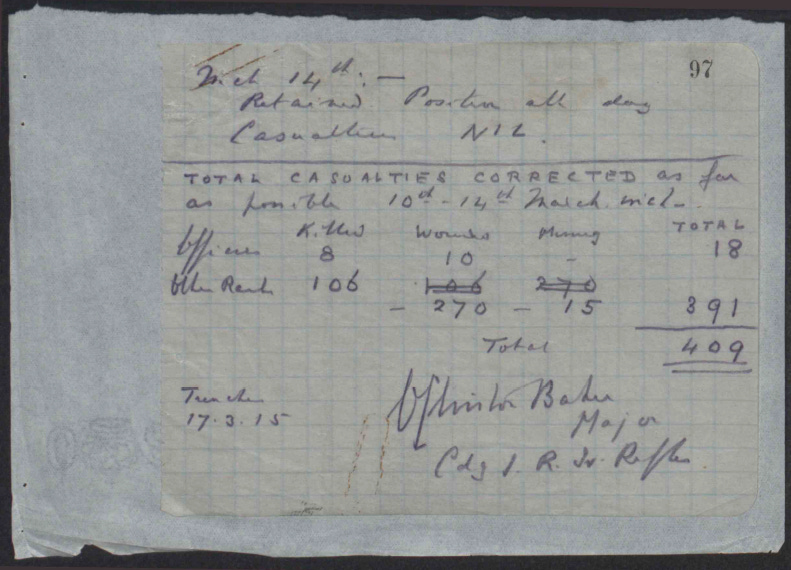 97
Mch 14th: —
Retained Position all day
Casualties NIL.
TOTAL CASUALTIES CORRECTED as far
as possible 10th - 14th March incl.
Killed Wounded Missing TOTAL
Officers 8 10 - 18
Other Rank 106 106 270
- 270 - 15 391
Total 409
Trenches
17.3.15
Baker
Major
Cdg 1. R. Ir. Rifles